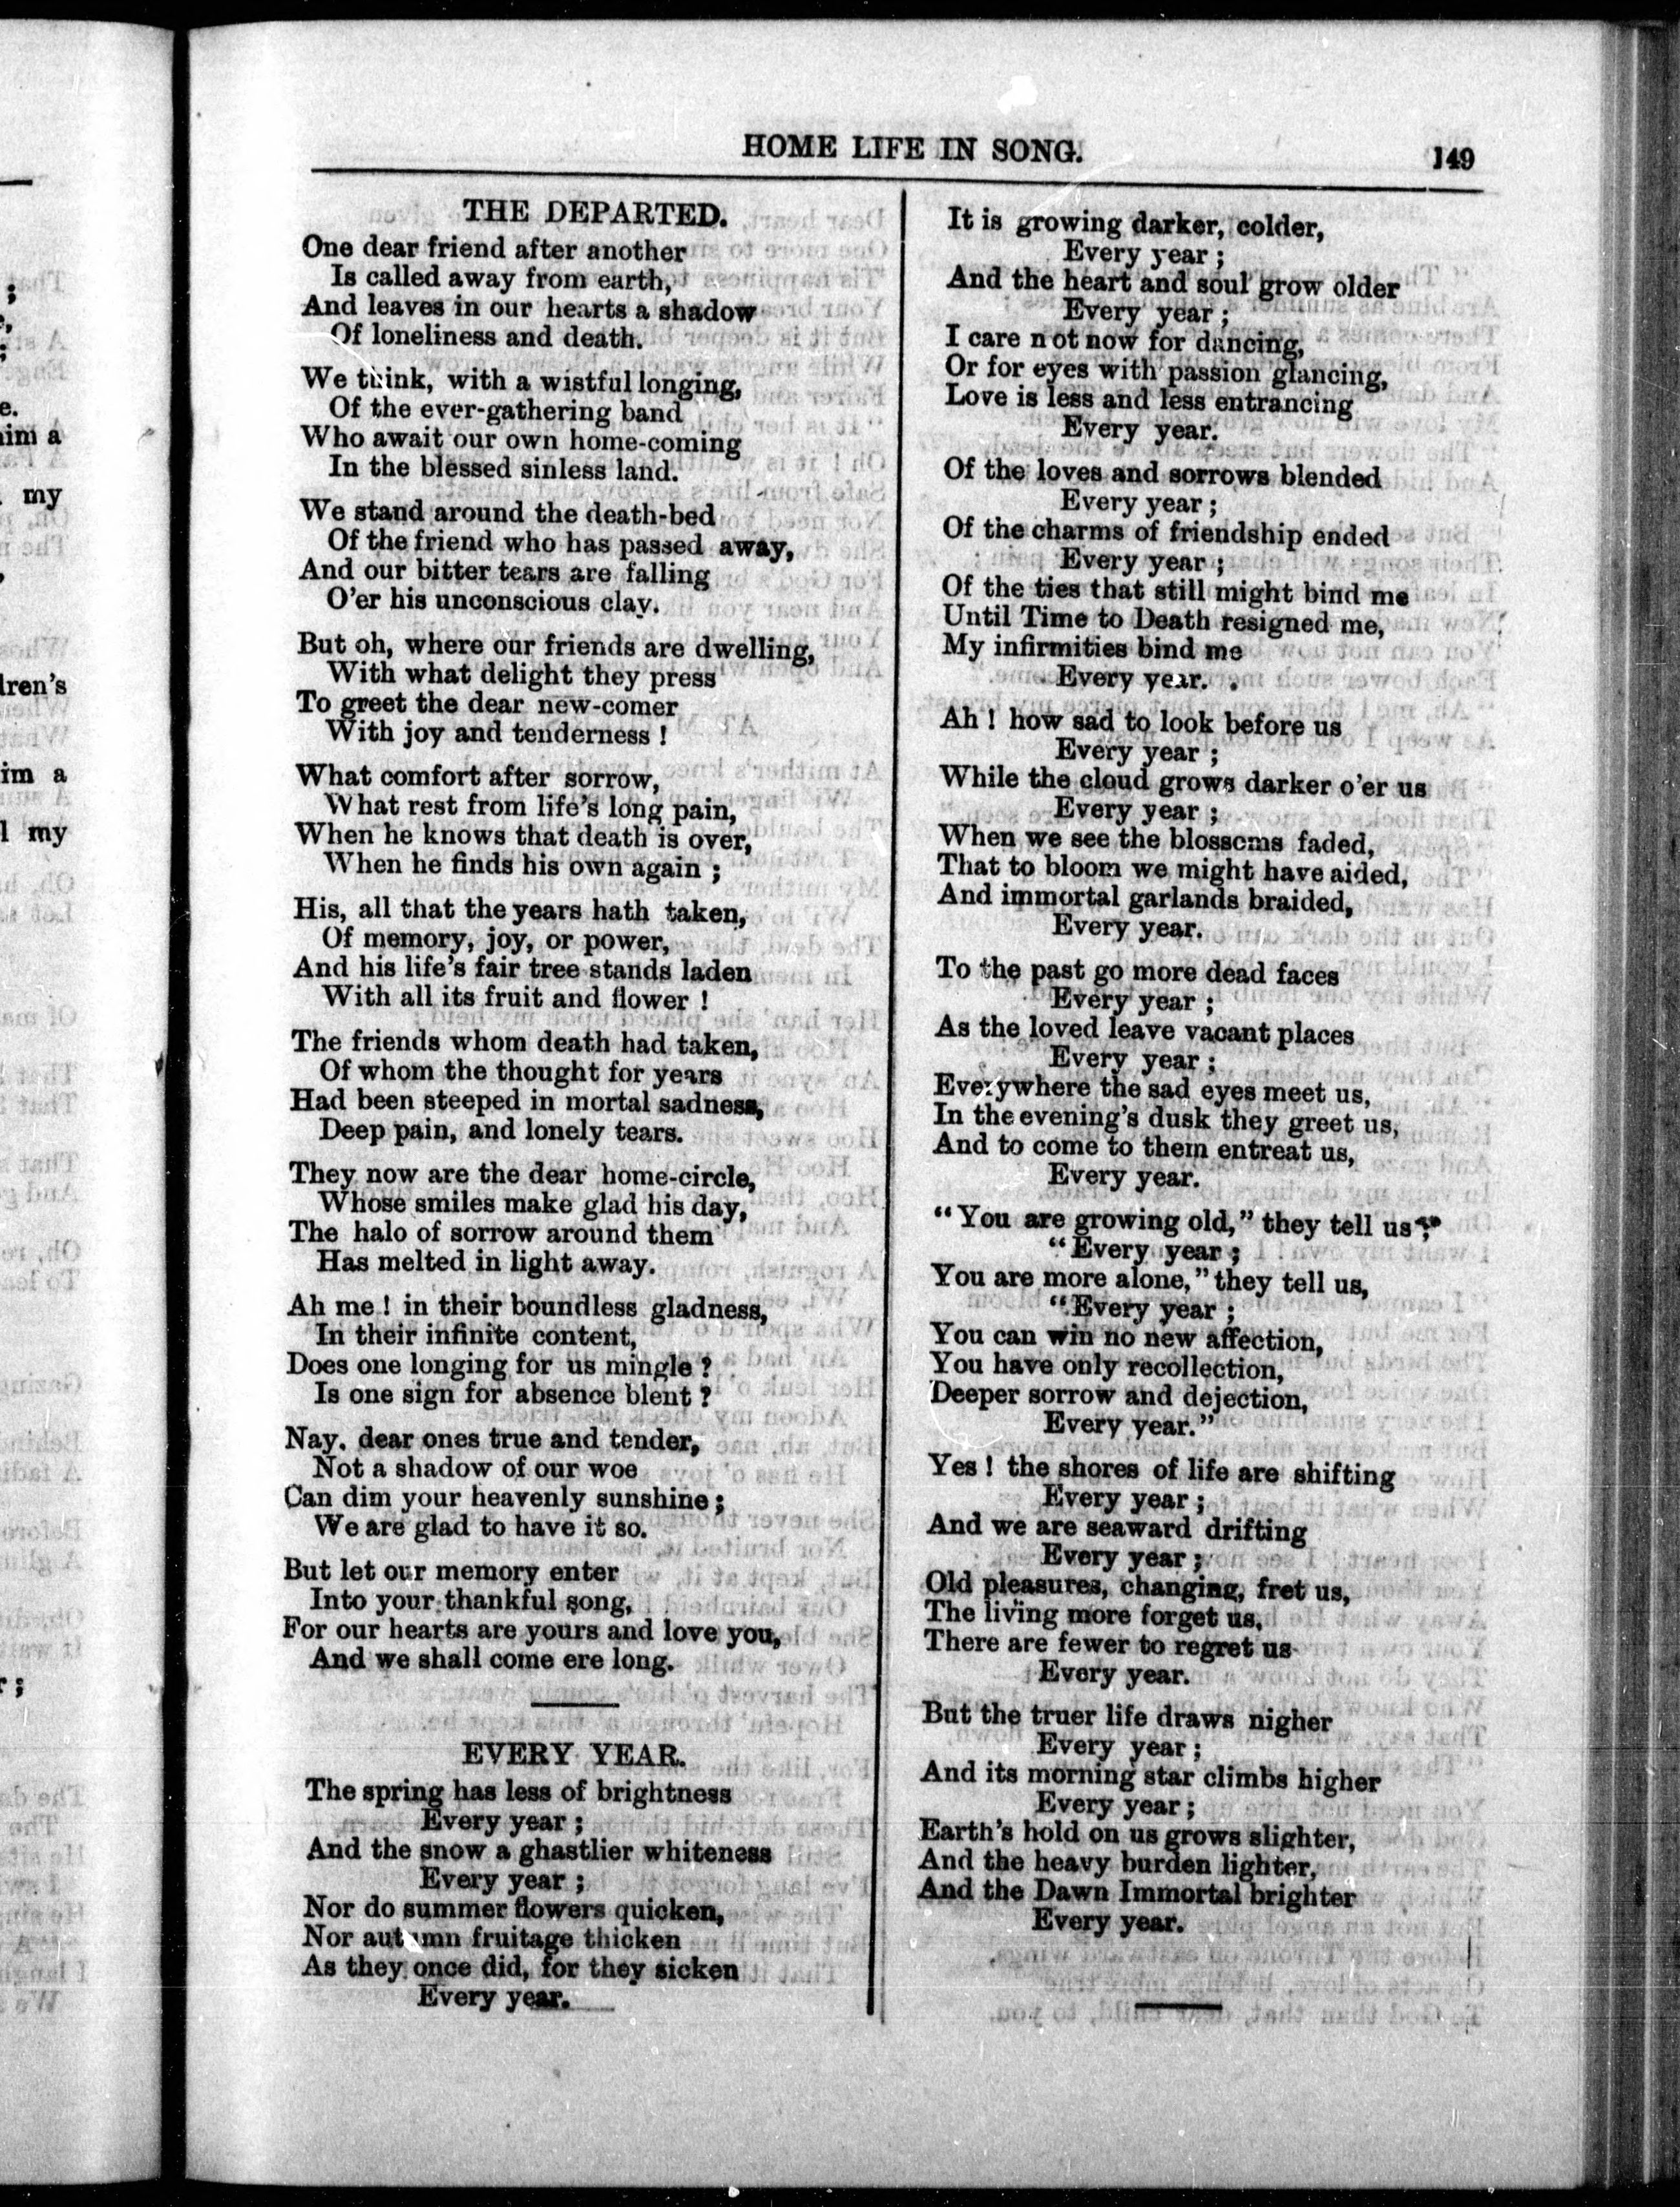 HOME LIFE IN SONG.
149
THE DEPARTED.
One dear friend after another
Is called away from earth,
And leaves in our hearts a shadow
Of loneliness and death.
We think, with a wistful longing,
Of the ever-gathering band
Who await our own home-coming
In the blessed sinless land.
We stand around the death-bed
Of the friend who has passed away,
And our bitter tears are falling
O'er his unconscious clay.
But oh, where our friends are dwelling,
With what delight they press
To greet the dear new-comer
With joy and tenderness !
What comfort after sorrow,
What rest from life's long pain,
When he knows that death is over,
When he finds his own again ;
His, all that the years hath taken,
Of memory, joy, or power,
And his life's fair tree stands laden
With all its fruit and flower !
The friends whom death had taken,
Of whom the thought for years
Had been steeped in mortal sadness,
Deep pain, and lonely tears.
They now are the dear home-circle,
Whose smiles make glad his day,
The halo of sorrow around them
Has melted in light away.
Ah me ! in their boundless gladness,
In their infinite content,
Does one longing for us mingle ?
Is one sign for absence blent ?
Nay, dear ones true and tender,
Not a shadow of our woe
Can dim your heavenly sunshine ;
We are glad to have it so.
But let our memory enter
Into your thankful song,
For our hearts are yours and love you,
And we shall come ere long.
EVERY YEAR.
The spring has less of brightness
Every year ;
And the snow a ghastlier whiteness
Every year ;
Nor do summer flowers quicken,
Nor autumn fruitage thicken
As they once did, for they sicken
Every year.
It is growing darker, colder,
Every year ;
And the heart and soul grow older
Every year ;
I care not now for dancing,
Or for eyes with passion glancing,
Love is less and less entrancing
Every year.
Of the loves and sorrows blended
Every year ;
Of the charms of friendship ended
Every year ;
Of the ties that still might bind me
Until Time to Death resigned me,
My infirmities bind me
Every year.
Ah ! how sad to look before us
Every year ;
While the cloud grows darker o'er us
Every year ;
When we see the blossoms faded,
That to bloom we might have aided,
And immortal garlands braided,
Every year.
To the past go more dead faces
Every year ;
As the loved leave vacant places
Every year ;
Everywhere the sad eyes meet us,
In the evening's dusk they greet us,
And to come to them entreat us,
Every year.
"You are growing old," they tell us,
"Every year ;
You are more alone," they tell us,
"Every year ;
You can win no new affection,
You have only recollection,
Deeper sorrow and dejection,
Every year."
Yes ! the shores of life are shifting
Every year ;
And we are seaward drifting
Every year ;
Old pleasures, changing, fret us,
The living more forget us,
There are fewer to regret us
Every year.
But the truer life draws nigher
Every year ;
And its morning star climbs higher
Every year ;
Earth's hold on us grows slighter,
And the heavy burden lighter,
And the Dawn Immortal brighter
Every year.